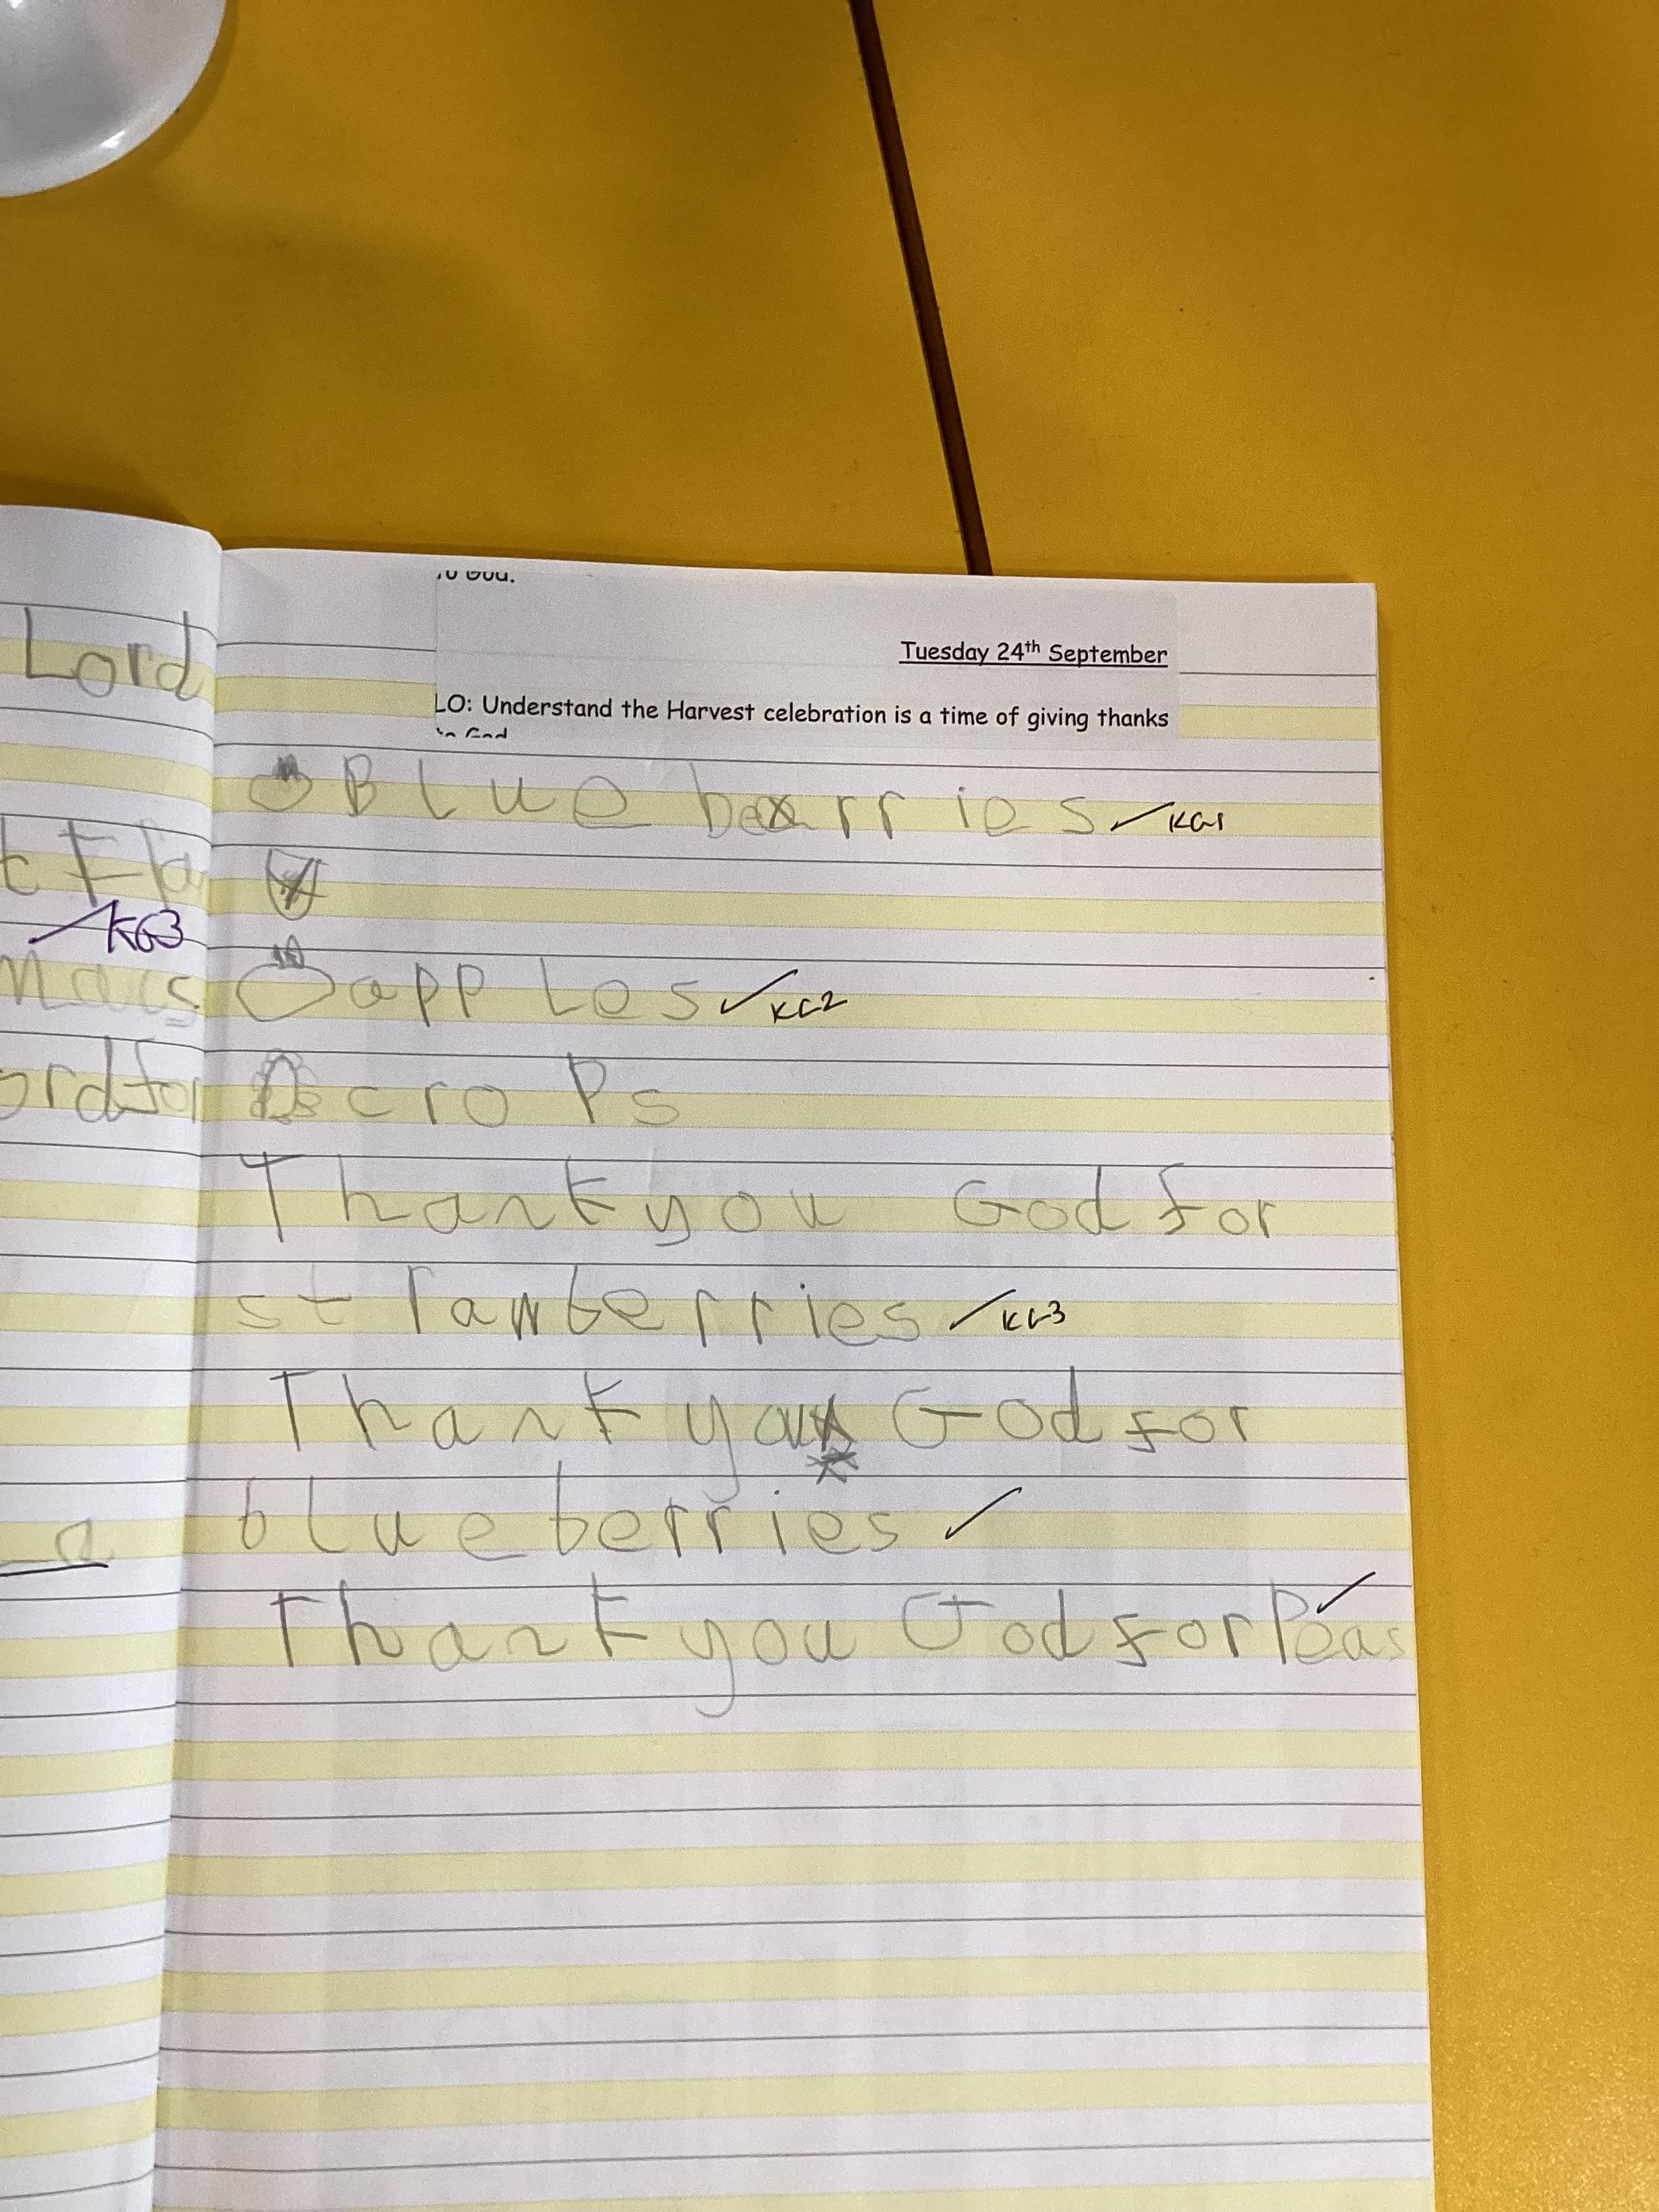 Tuesday 24th September
LO: Understand the Harvest celebration is a time of giving thanks
to God
Blue berries ✓ KG1
apples ✓ KG2
croPs
Thank you God for
strawberries ✓ KG3
Thank you God for
blueberries ✓
Thank you God for Peas ✓
Lord
KG3